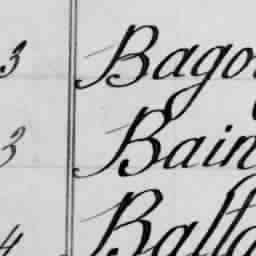 3 Bago
3 Bain
4 Balt